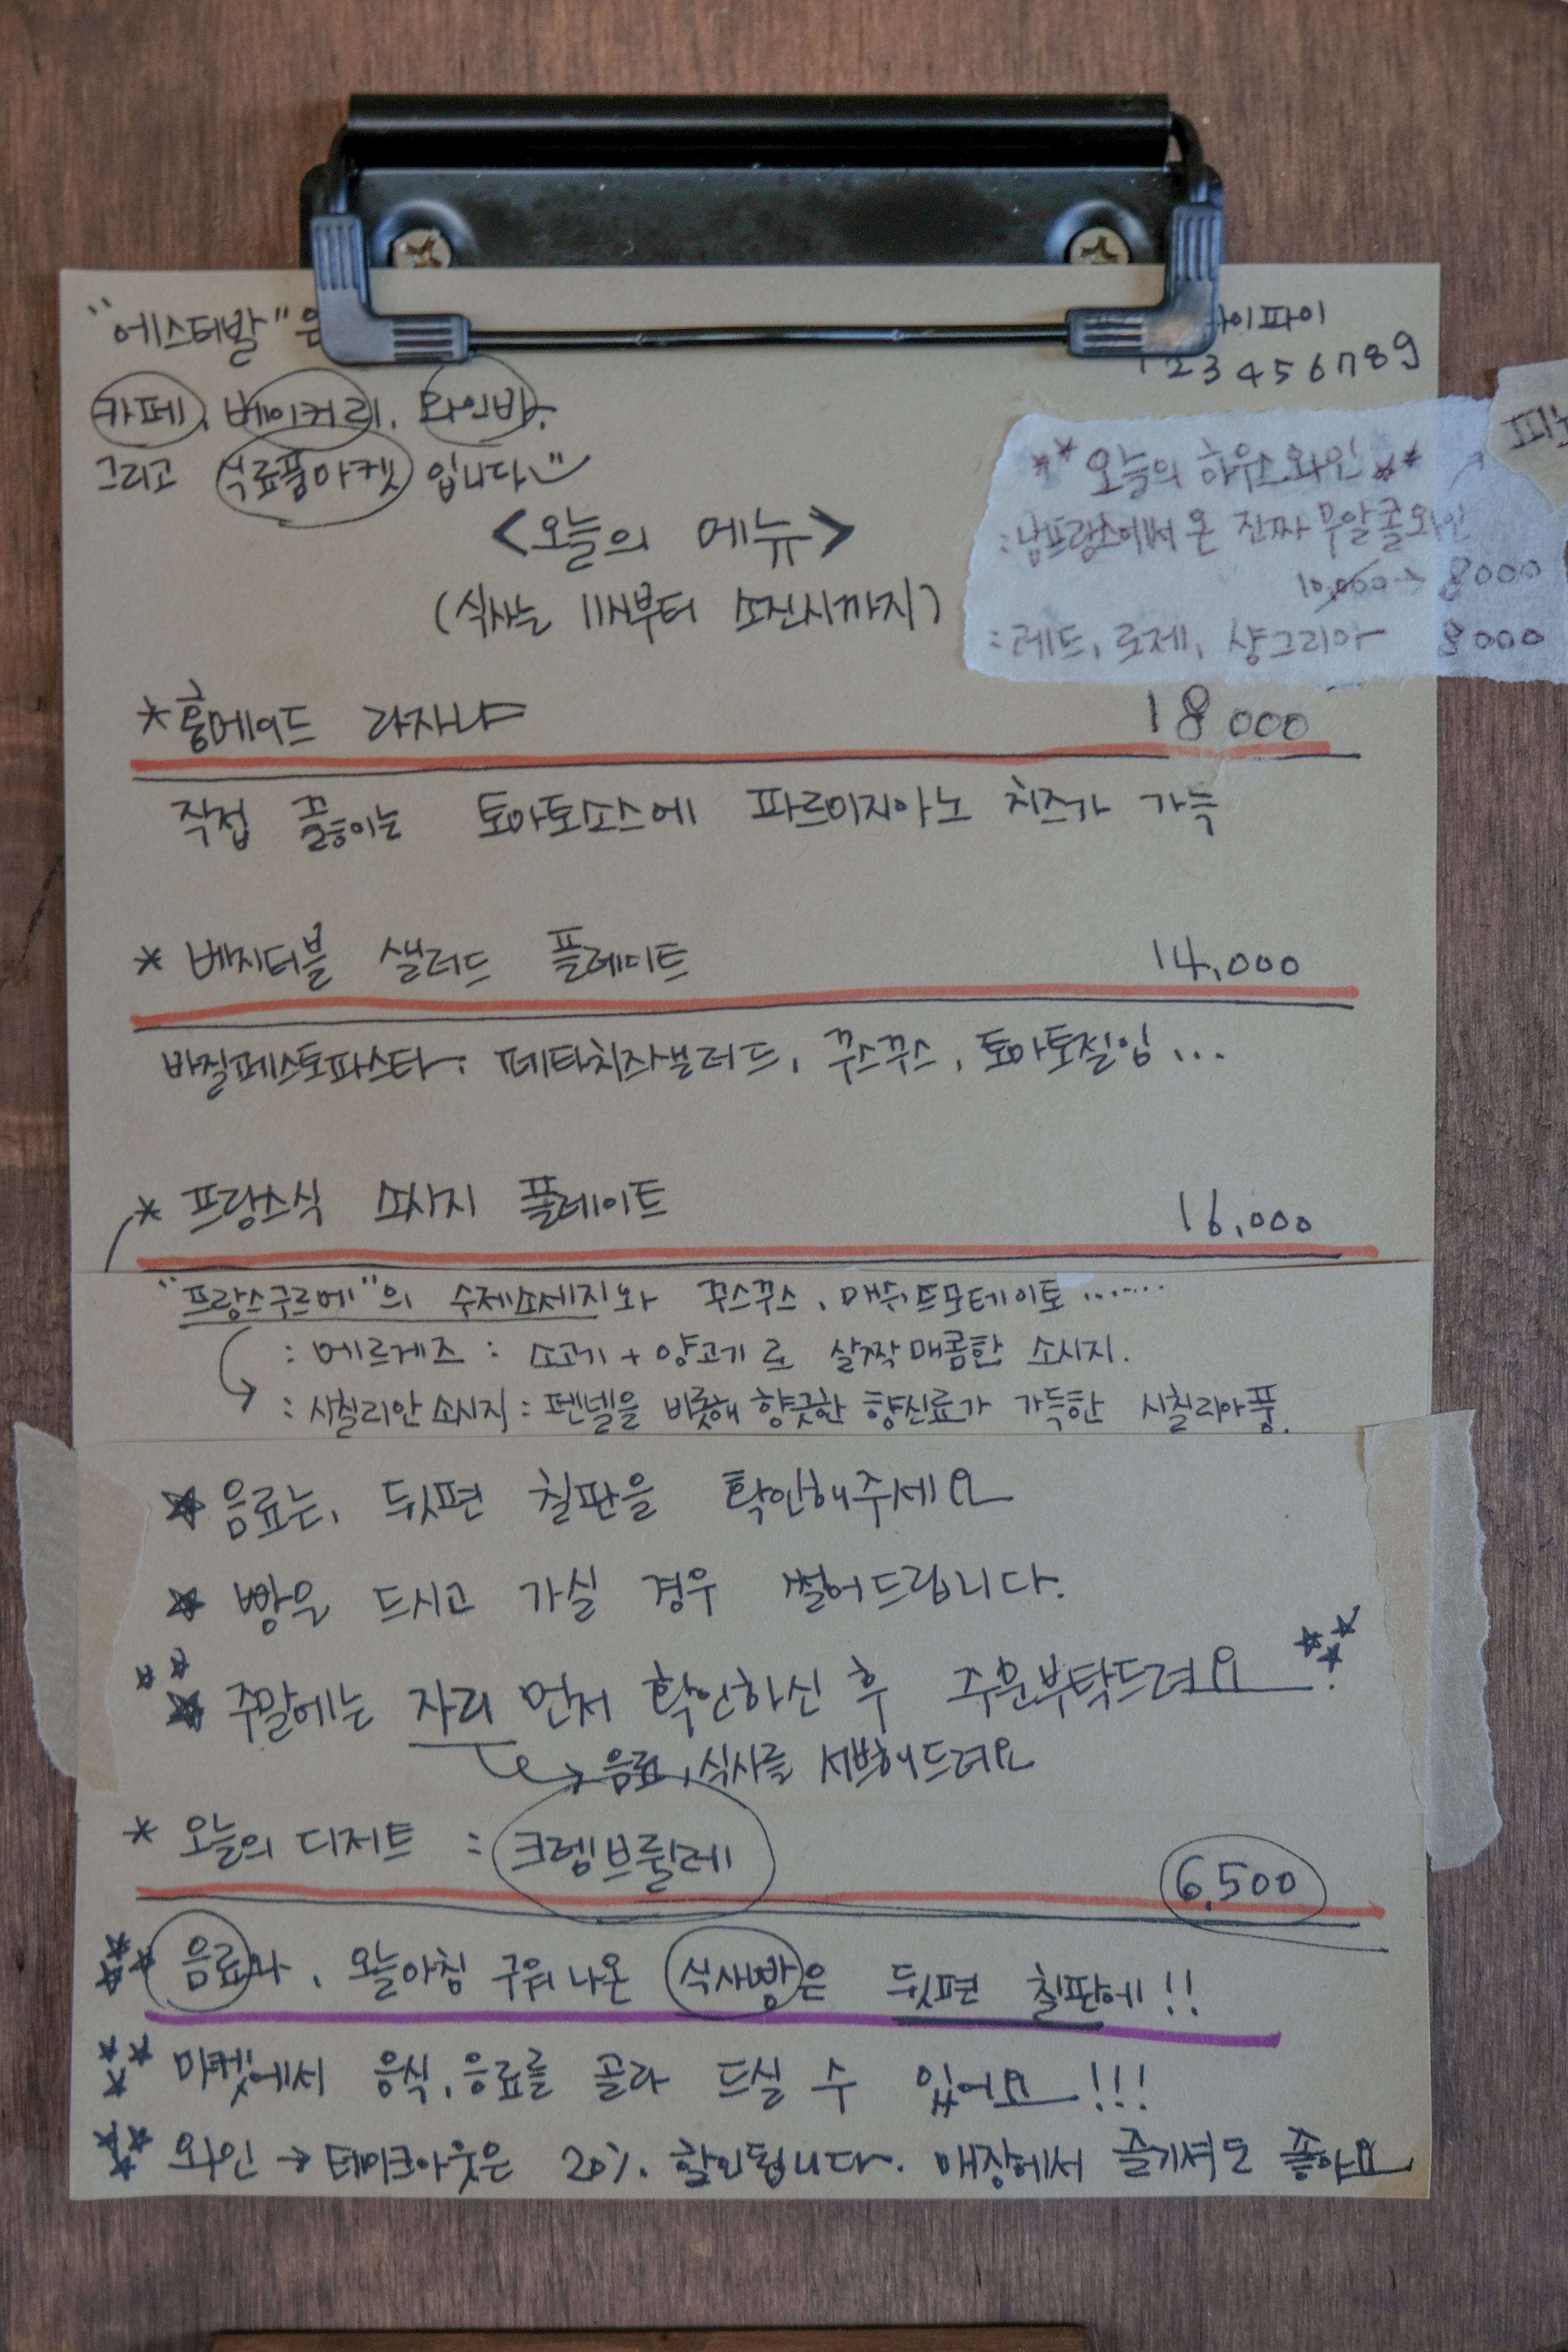 "에스테발"은
카페, 베이커리, 와인바,
그리고 식료품마켓 입니다
와이파이
123456789
**오늘의 하우스와인**
:남프랑스에서 온 진짜 무알콜와인
10,000→8000
:레드, 로제, 샹그리아 8000
<오늘의 메뉴>
(식사는 11시부터 소진시까지)
*홈메이드 라자냐 18000
직접 끓이는 토마토소스에 파르미지아노 치즈가 가득
* 베지터블 샐러드 플레이트 14,000
바질페스토파스타, 페타치즈샐러드, 꾸스꾸스, 토마토절임...
* 프랑스식 소시지 플레이트 16,000
"프랑스구르메"의 수제소세지와 꾸스꾸스, 매쉬드포테이토......
: 메르게즈 : 소고기+양고기로 살짝매콤한 소시지.
: 시칠리안소시지 : 펜넬을 비롯해 향긋한 향신료가 가득한 시칠리아풍.
☆ 음료는, 뒷편 칠판을 확인해주세요
☆ 빵은 드시고 가실 경우 썰어드립니다.
☆☆☆ 주말에는 자리 먼저 확인하신 후 주문부탁드려요. ☆☆☆
→ 음료, 식사를 서브해드려요
* 오늘의 디저트 : 크렘브륄레 6,500
☆☆☆ 음료와, 오늘아침 구워나온 식사빵은 뒷편 칠판에!!
☆☆☆ 마켓에서 음식, 음료를 골라 드실 수 있어요!!!
☆☆☆ 와인 → 테이크아웃은 20% 할인됩니다. 매장에서 즐기셔도 좋아요